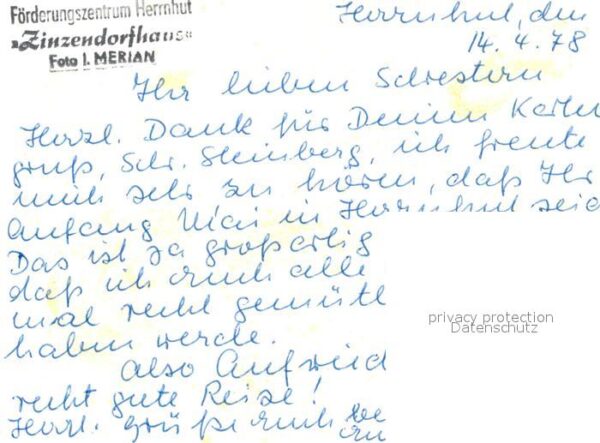 Förderungszentrum Herrnhut
»Zinzendorfhaus«
Foto I. MERIAN
Herrnhut, den
14. 4. 78
Ihr lieben Schwestern
Herzl. Dank für Deinen Karten
gruß, Schw. Steinberg, ich freute
mich sehr zu hören, daß Ihr
Anfang Mai in Herrnhut seid
Das ist ja großartig
daß ich euch alle
mal recht gemütl
haben werde.
Also
recht gute Reise!
Herzl. Grüße euch
privacy protection
Datenschutz